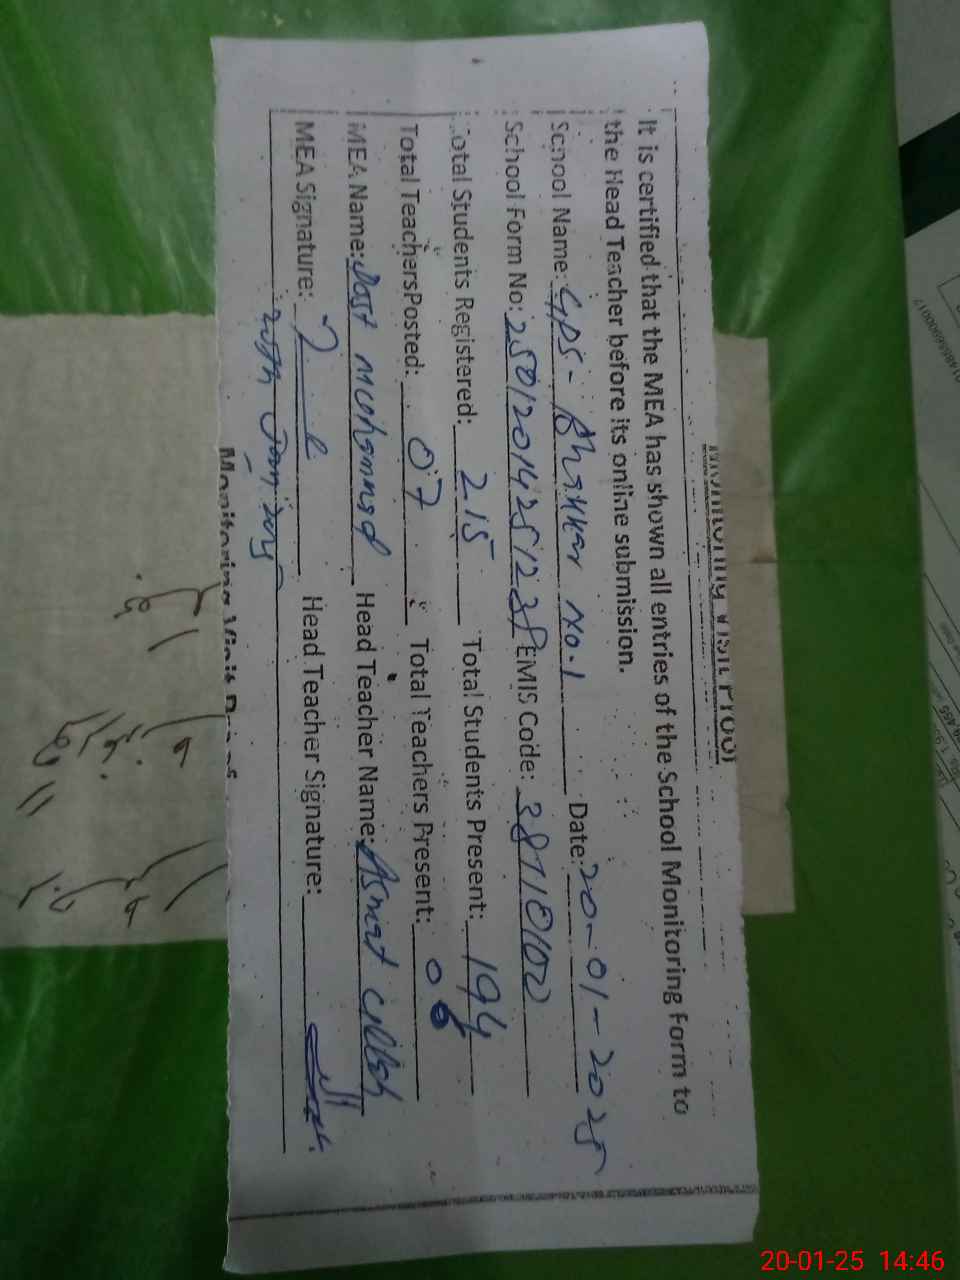 Monitoring Visit Proof
It is certified that the MEA has shown all entries of the School Monitoring Form to
the Head Teacher before its online submission.
School Name: GPS- Bhakkar No.1 Date: 20-01-2025
School Form No: EMIS Code: 38710100
Total Students Registered: 215 Total Students Present: 194
Total TeachersPosted: 07 Total Teachers Present: 06
MEA Name: Dost Muhammad Head Teacher Name: Asmat ullah
MEA Signature: Head Teacher Signature:
20th Jan, 2025
Monitoring Visit Proof
20-01-25 14:46